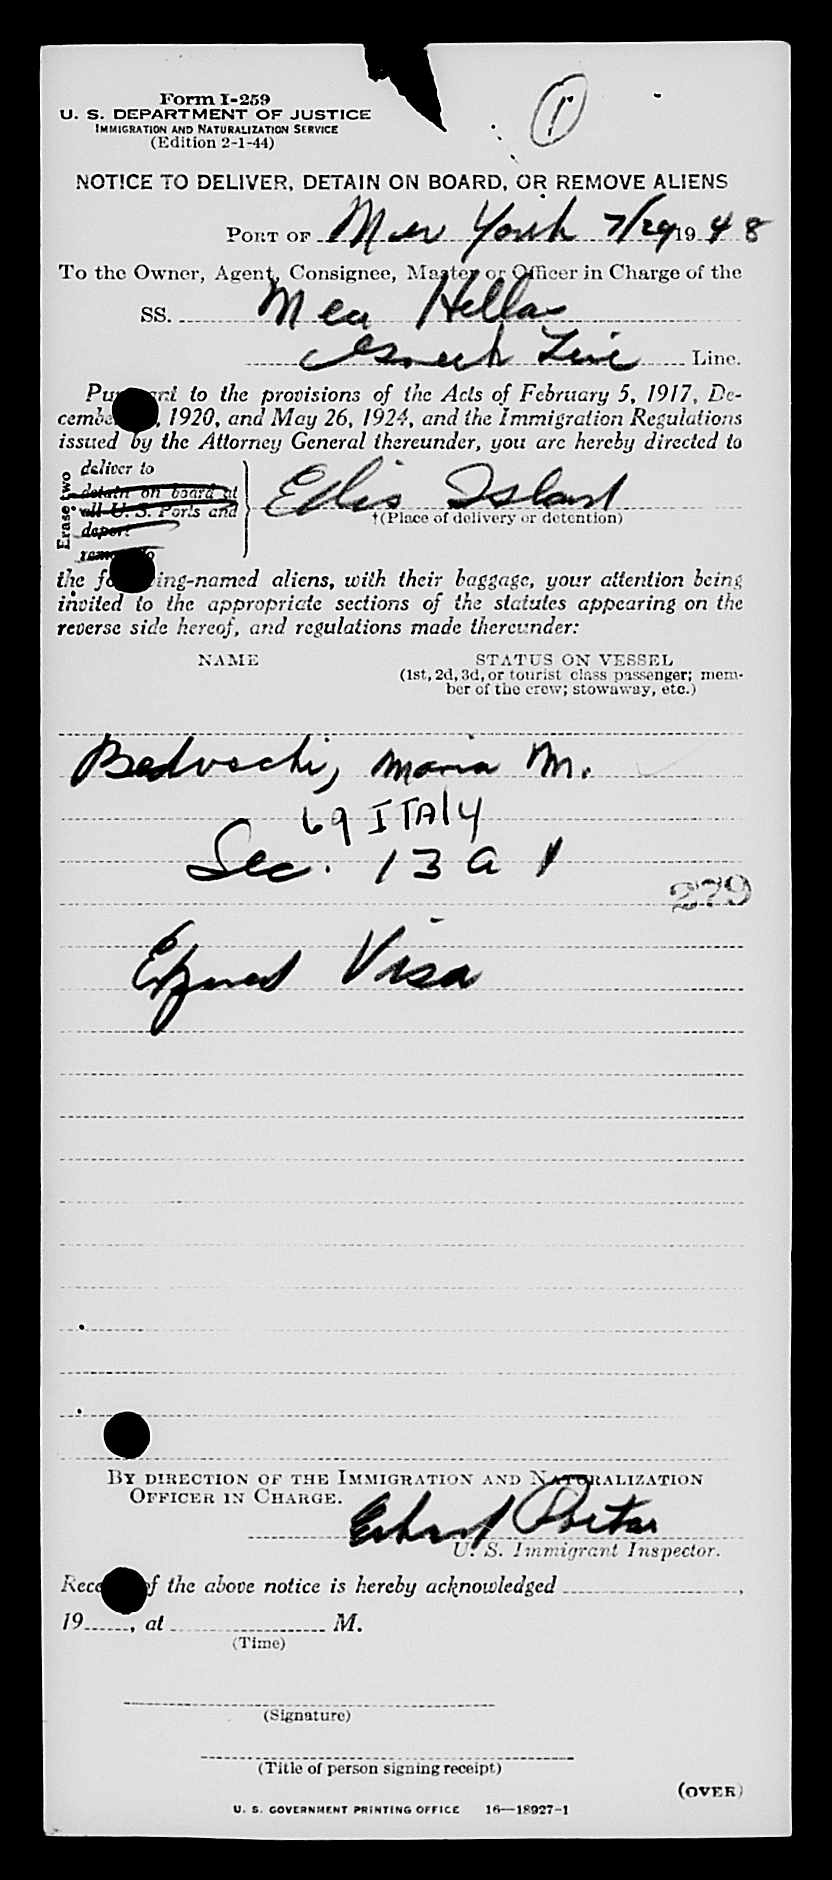 1
Form I-259
U. S. DEPARTMENT OF JUSTICE
IMMIGRATION AND NATURALIZATION SERVICE
(Edition 2-1-44)
NOTICE TO DELIVER, DETAIN ON BOARD, OR REMOVE ALIENS
PORT OF New York 7/29 1948
To the Owner, Agent, Consignee, Master or Officer in Charge of the
SS. Nea Hellas
Greek Line Line.
Pursuant to the provisions of the Acts of February 5, 1917, De-
cember , 1920, and May 26, 1924, and the Immigration Regulations
issued by the Attorney General thereunder, you are hereby directed to
Erase two
deliver to
detain on board at
all U. S. Ports and
deport
Ellis Island
†(Place of delivery or detention)
the following-named aliens, with their baggage, your attention being
invited to the appropriate sections of the statutes appearing on the
reverse side hereof, and regulations made thereunder:
NAME STATUS ON VESSEL
(1st, 2d, 3d, or tourist class passenger; mem-
ber of the crew; stowaway, etc.)
Beduschi, Maria M.
69 ITALY
Sec. 13 a 1
279
Expired Visa
BY DIRECTION OF THE IMMIGRATION AND NATURALIZATION
OFFICER IN CHARGE.
U. S. Immigrant Inspector.
Receipt of the above notice is hereby acknowledged ,
19 , at M.
(Time)
(Signature)
(Title of person signing receipt)
(OVER)
U. S. GOVERNMENT PRINTING OFFICE 16—18927-1